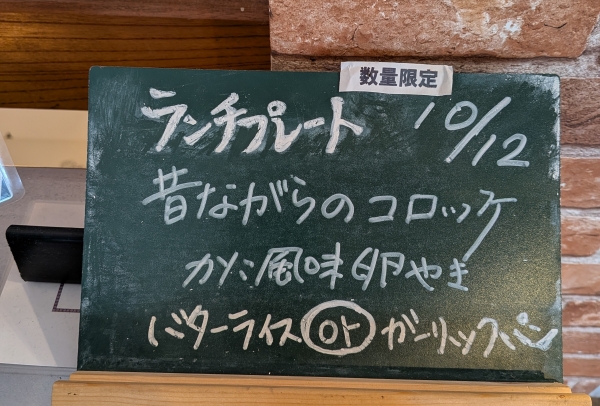 数量限定
ランチプレート 10/12
昔ながらのコロッケ
カニ風味卵やき
バターライス or ガーリックパン